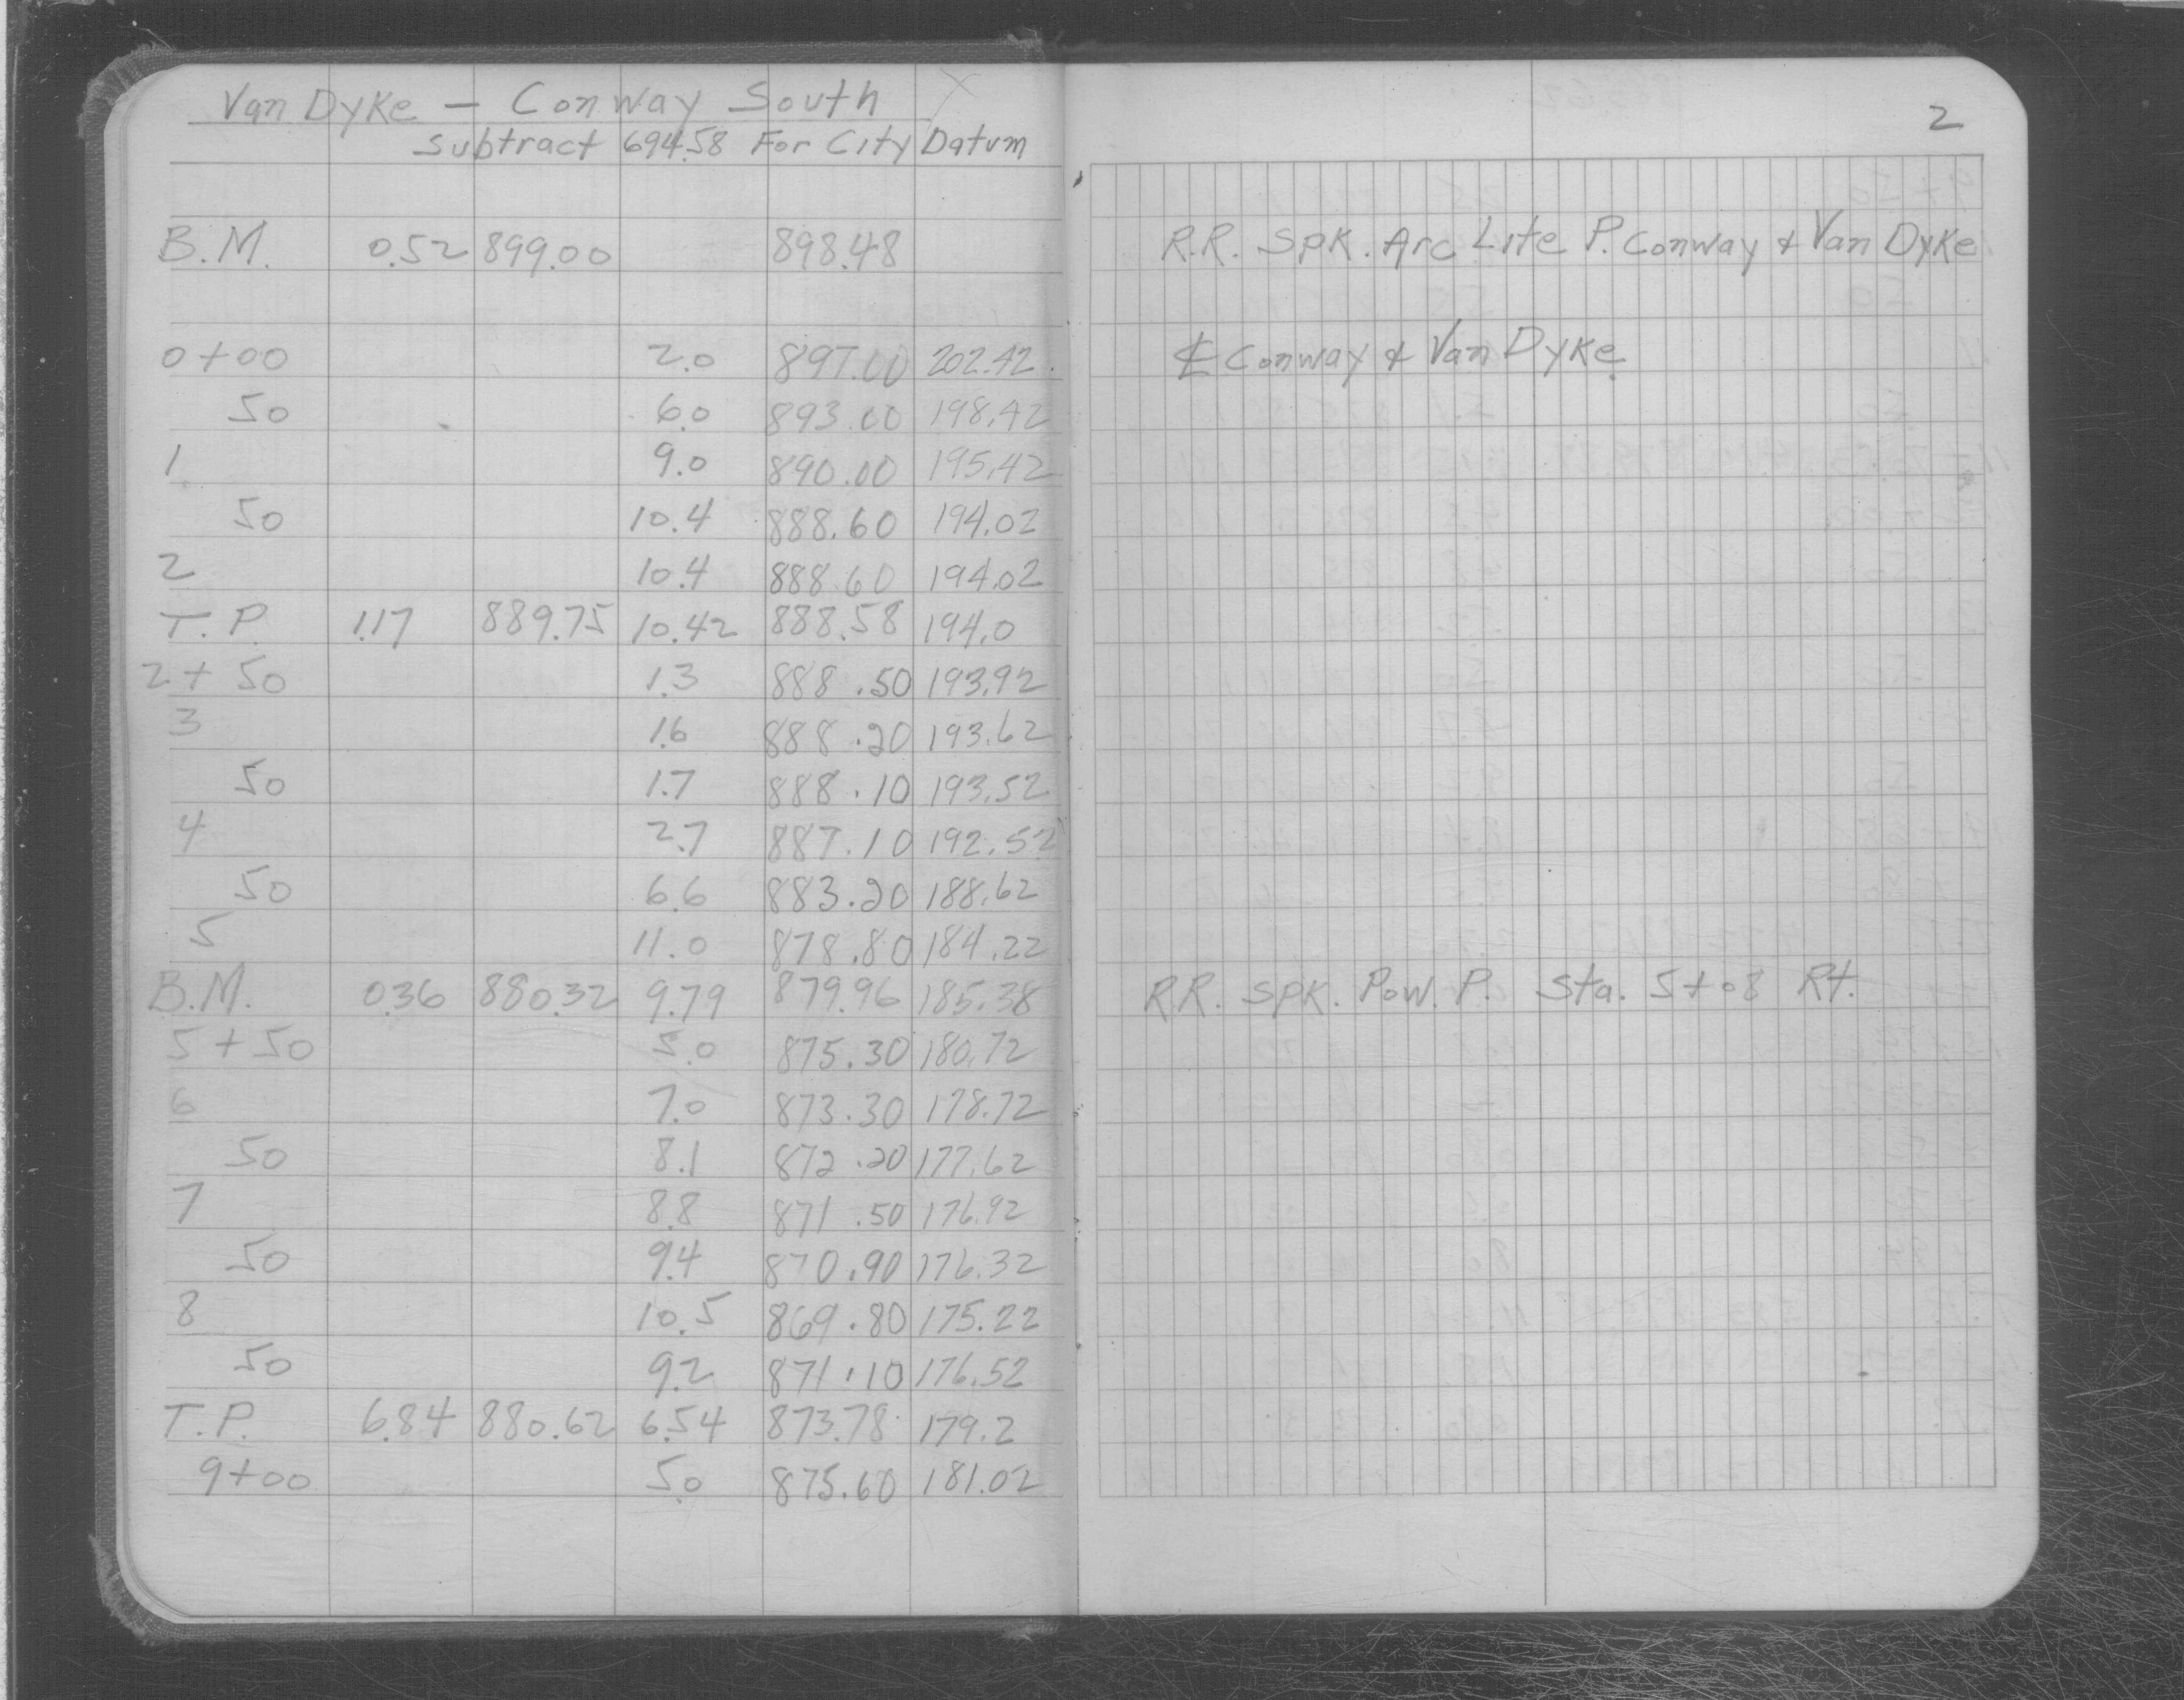 Van Dyke — Conway South X
Subtract 694.58 For City Datum
2
B.M. 0.52 899.00 898.48 R.R. Spk. Arc Lite P. Conway & Van Dyke
0+00 2.0 897.00 202.42 ℄ Conway & Van Dyke
50 6.0 893.00 198.42
1 9.0 890.00 195.42
50 10.4 888.60 194.02
2 10.4 888.60 194.02
T.P. 1.17 889.75 10.42 888.58 194.0
2+50 1.3 888.50 193.92
3 1.6 888.20 193.62
50 1.7 888.10 193.52
4 2.7 887.10 192.52
50 6.6 883.20 188.62
5 11.0 878.80 184.22
B.M. 0.36 880.32 9.79 879.96 185.38 R.R. Spk. Pow. P. Sta. 5+08 Rt.
5+50 5.0 875.30 180.72
6 7.0 873.30 178.72
50 8.1 872.20 177.62
7 8.8 871.50 176.92
50 9.4 870.90 176.32
8 10.5 869.80 175.22
50 9.2 871.10 176.52
T.P. 6.84 880.62 6.54 873.78 179.2
9+00 5.0 875.60 181.02